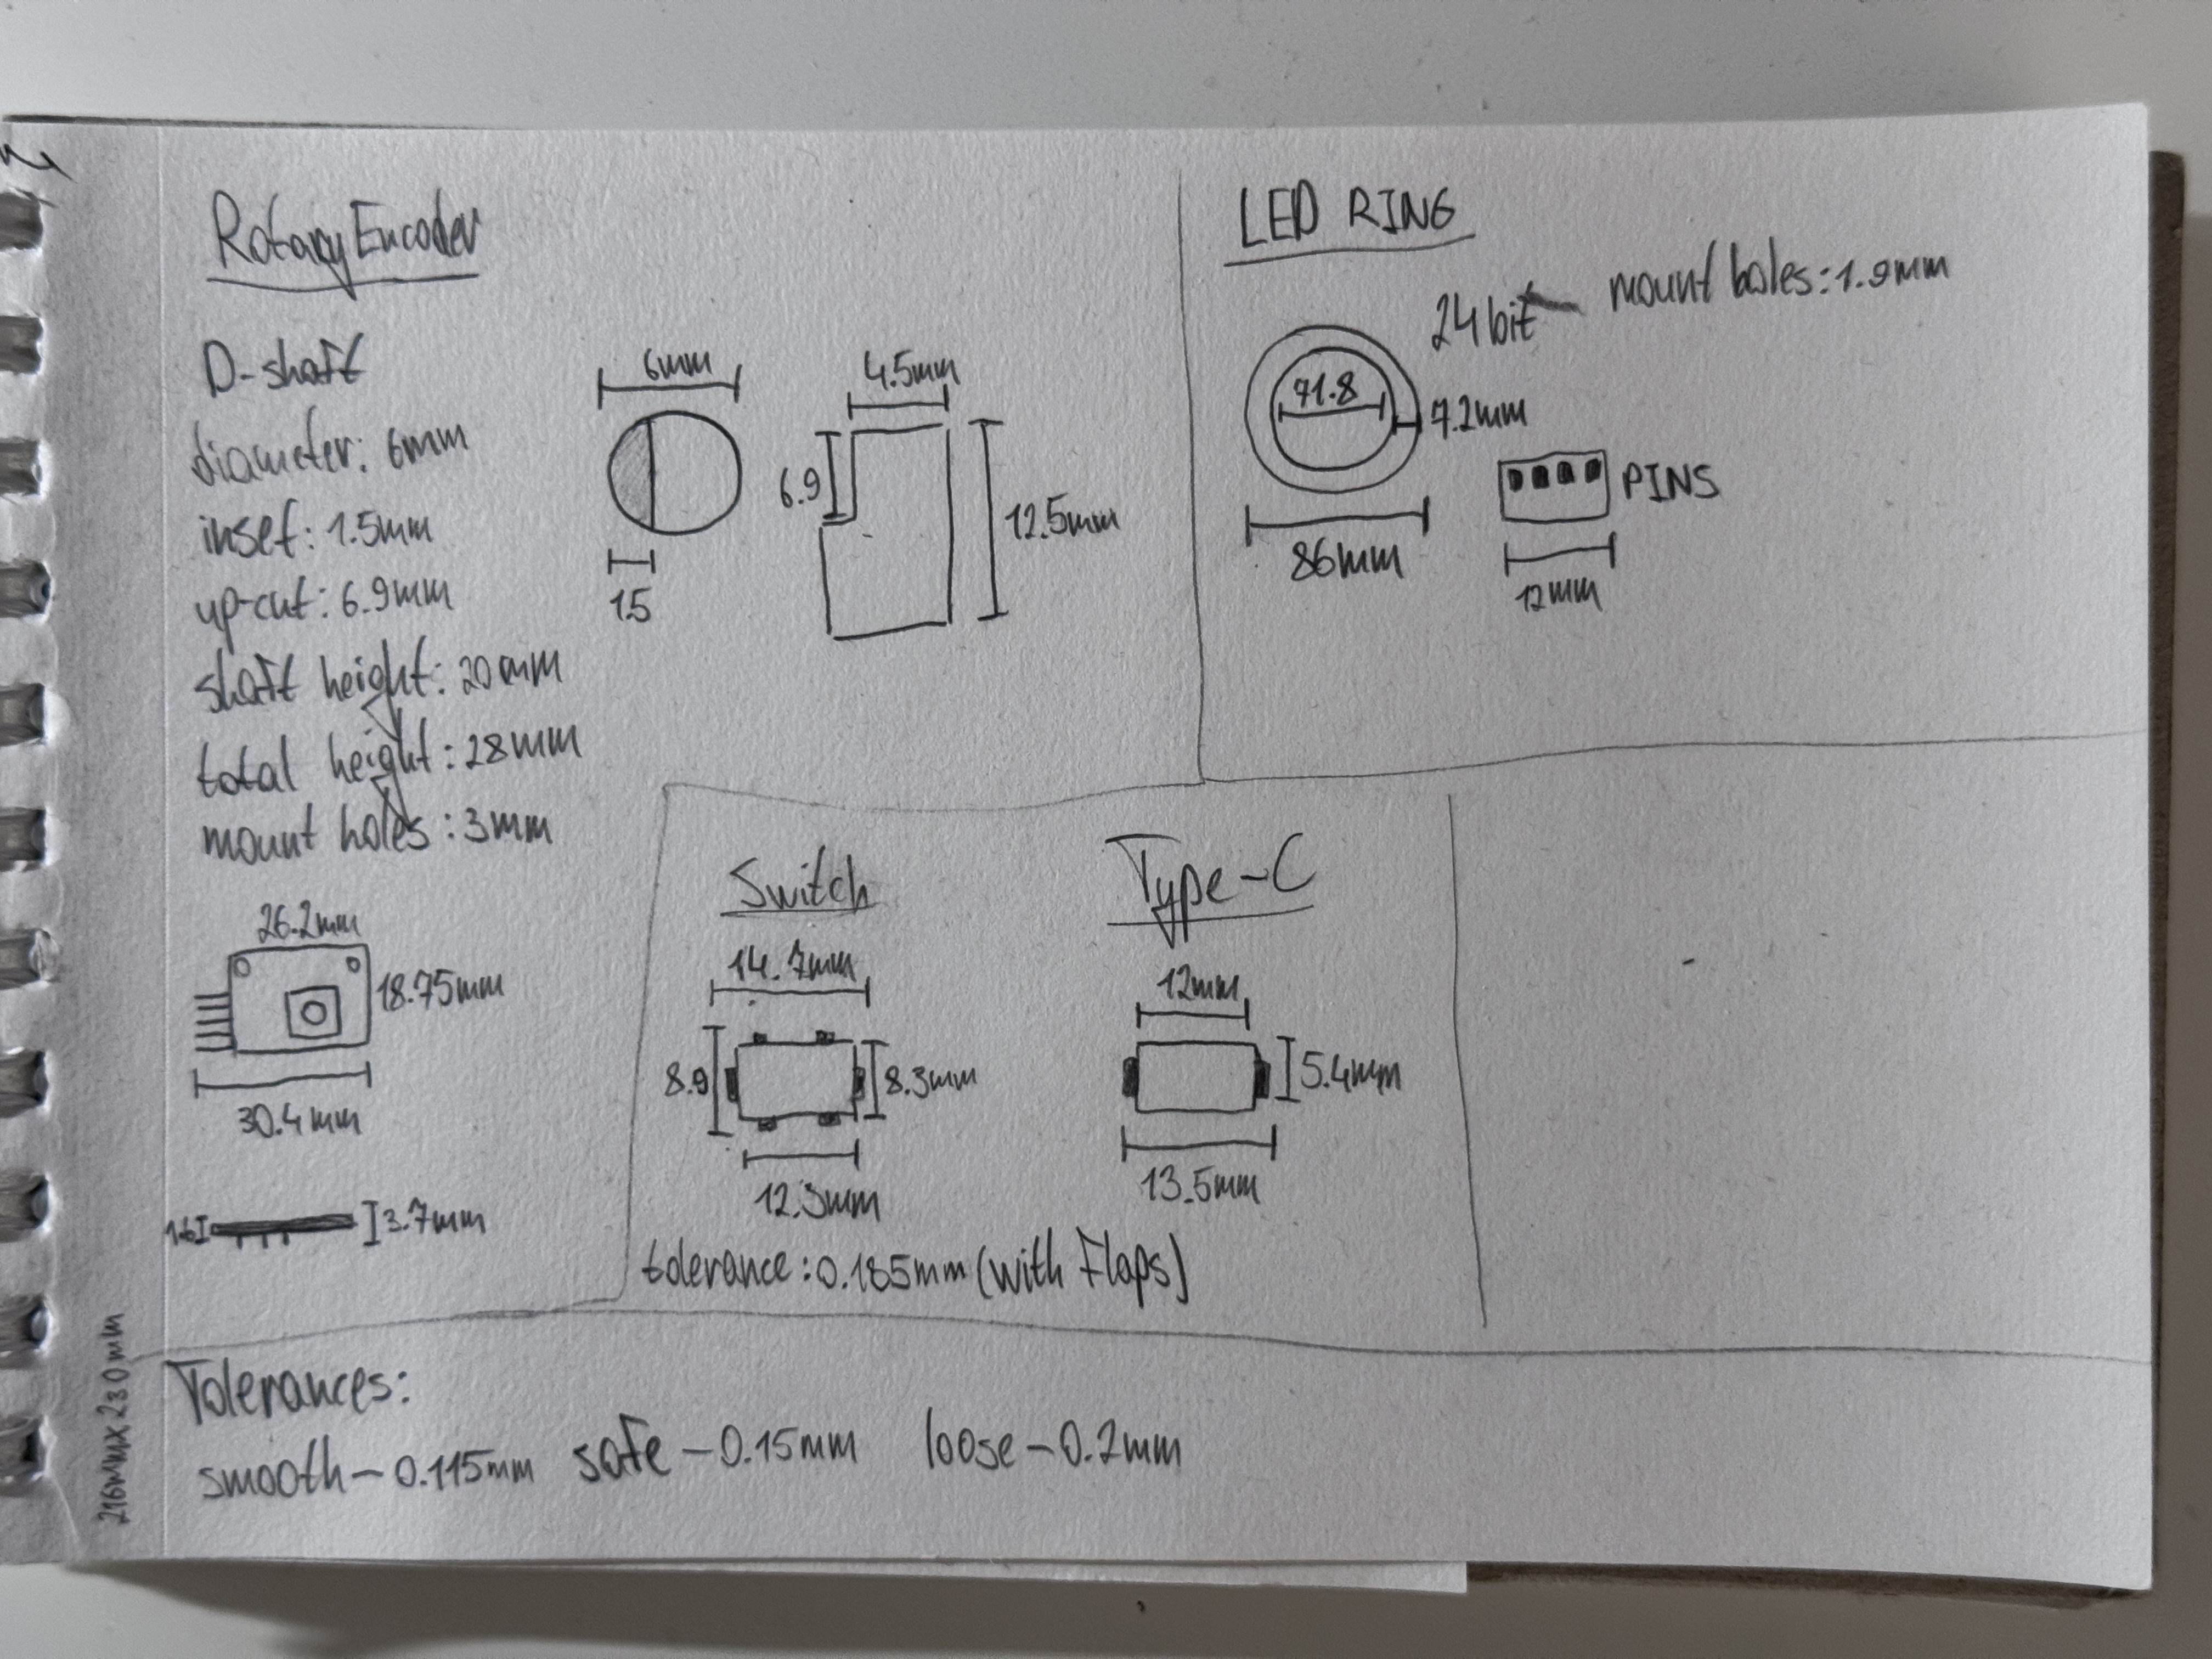 Rotary Encoder
D-shaft
diameter: 6mm
inset: 1.5mm
up-cut: 6.9mm
shaft height: 20mm
total height: 28mm
mount holes: 3mm
6mm
15
4.5mm
6.9
12.5mm
26.2mm
18.75mm
30.4mm
3.7mm
LED RING
24bit
mount holes: 1.9mm
71.8
7.2mm
86mm
PINS
12mm
Switch
14.7mm
8.9
8.3mm
12.3mm
Type-C
12mm
5.4mm
13.5mm
tolerance: 0.185mm (with Flaps)
Tolerances:
smooth - 0.115mm safe - 0.15mm loose - 0.2mm